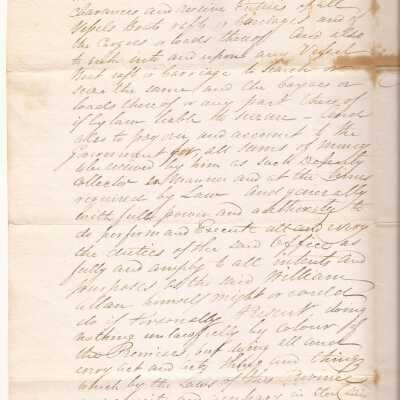 Clearances and receive Entries of all
Vessels Boats rafts or Carriages and of
the Cargoes or loads thereof And also
to enter into and upon any Vessel
Boat raft or Carriage to Search or
seize the same and the Cargoes or
loads thereof or any part thereof
if by law liable to seizure – And
also to pay over and account to the
Government for all sums of money
received by him as such Deputy
Collector in manner and at the times
required by Law And generally
with full power and authority to
do perform and Execute all and every
the duties of the said Office as
fully and amply to all intents and
purposes as the said William
Allan himself might or could
do if Personally Present doing
nothing unlawfully by Colour of
the Premises, but doing all and
every act and acts thing and things
which by the Laws of this Province
necessary in